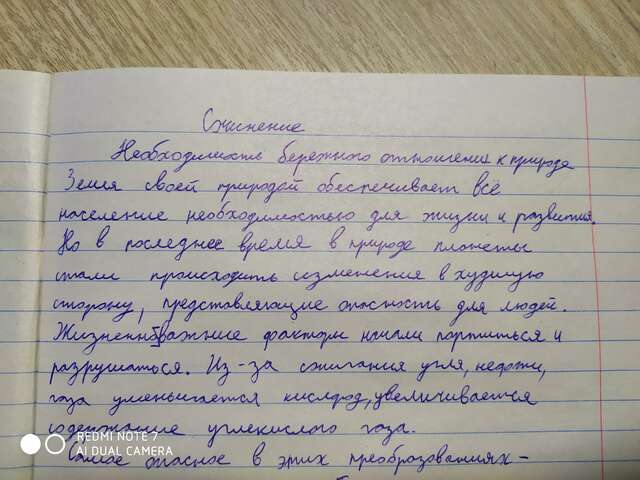 Сочинение
Необходимость бережного отношения к природе
Земля своей природой обеспечивает всё
население необходимостью для жизни и развития.
Но в последнее время в природе планеты
стали происходить изменения в худшую
сторону, представляющие опасность для людей.
Жизненноважные факторы начали портиться и
разрушаться. Из-за сжигания угля, нефти,
газа уменьшается кислород, увеличивается
содержание углекислого газа.
Самое опасное в этих преобразованиях-
REDMI NOTE 7
AI DUAL CAMERA